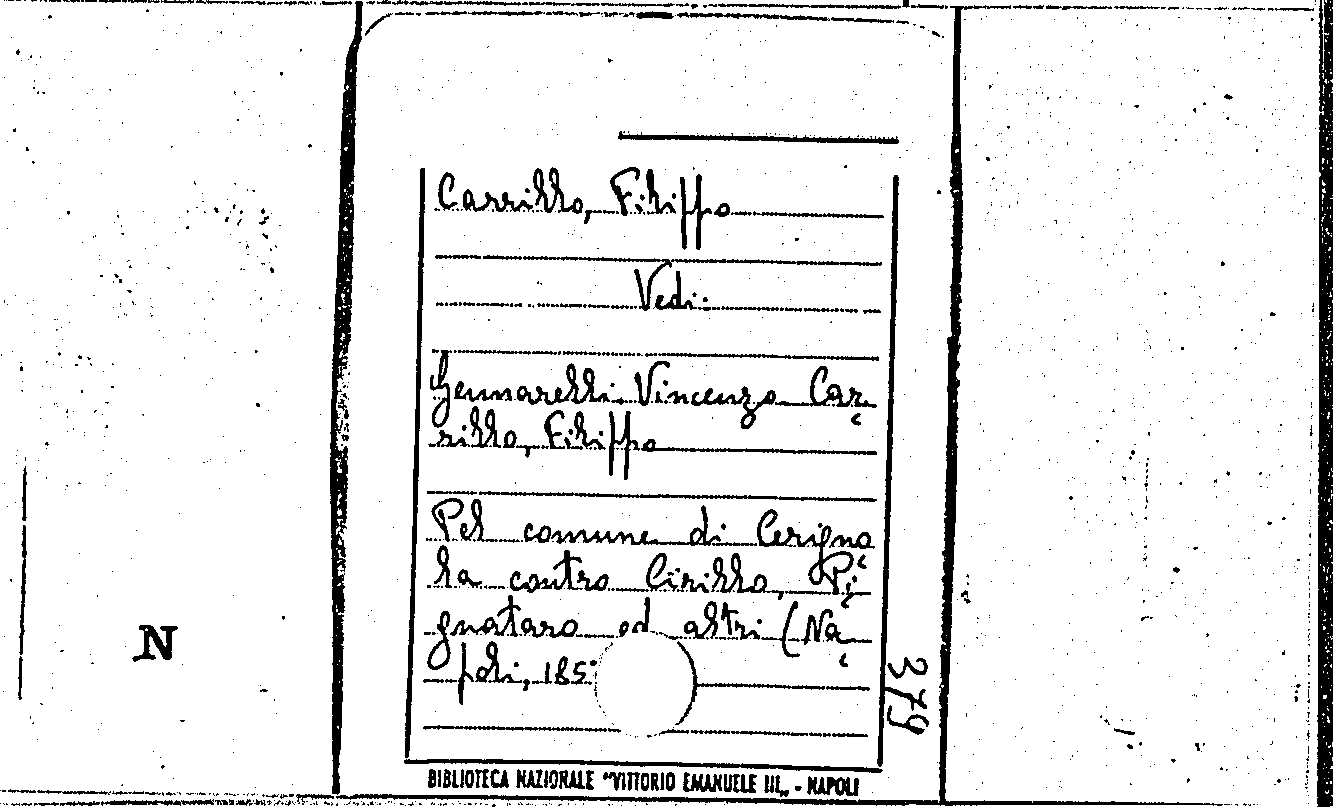 Carrillo, Filippo
Vedi:
Gennarelli Vincenzo Car-
rillo, Filippo
Pel comune di Cerigno
la contro Cirillo, Pi-
gnataro ed altri (Na-
poli, 185
379
N
BIBLIOTECA NAZIONALE "VITTORIO EMANUELE III„ - NAPOLI